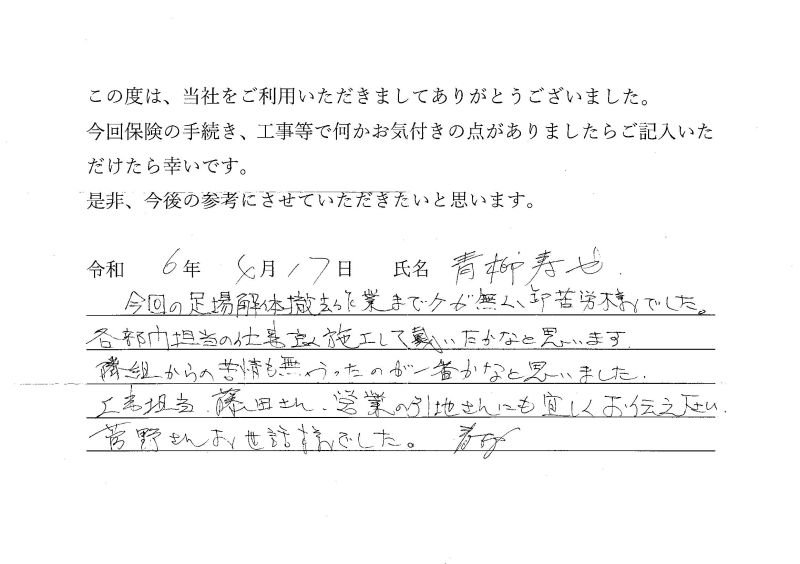 この度は、当社をご利用いただきましてありがとうございました。
今回保険の手続き、工事等で何かお気付きの点がありましたらご記入いた
だけたら幸いです。
是非、今後の参考にさせていただきたいと思います。
令和 6年 4月17日 氏名 青柳寿也
今回の足場解体撤去作業までケガ無く、御苦労様でした。
各部門担当の仕事良く施工して戴いたかなと思います
隣組からの苦情も無かったのが一番かなと思いました.
工事担当、藤田さん、営業の引地さんにも宜しくお伝え下さい.
菅野さんお世話様でした。